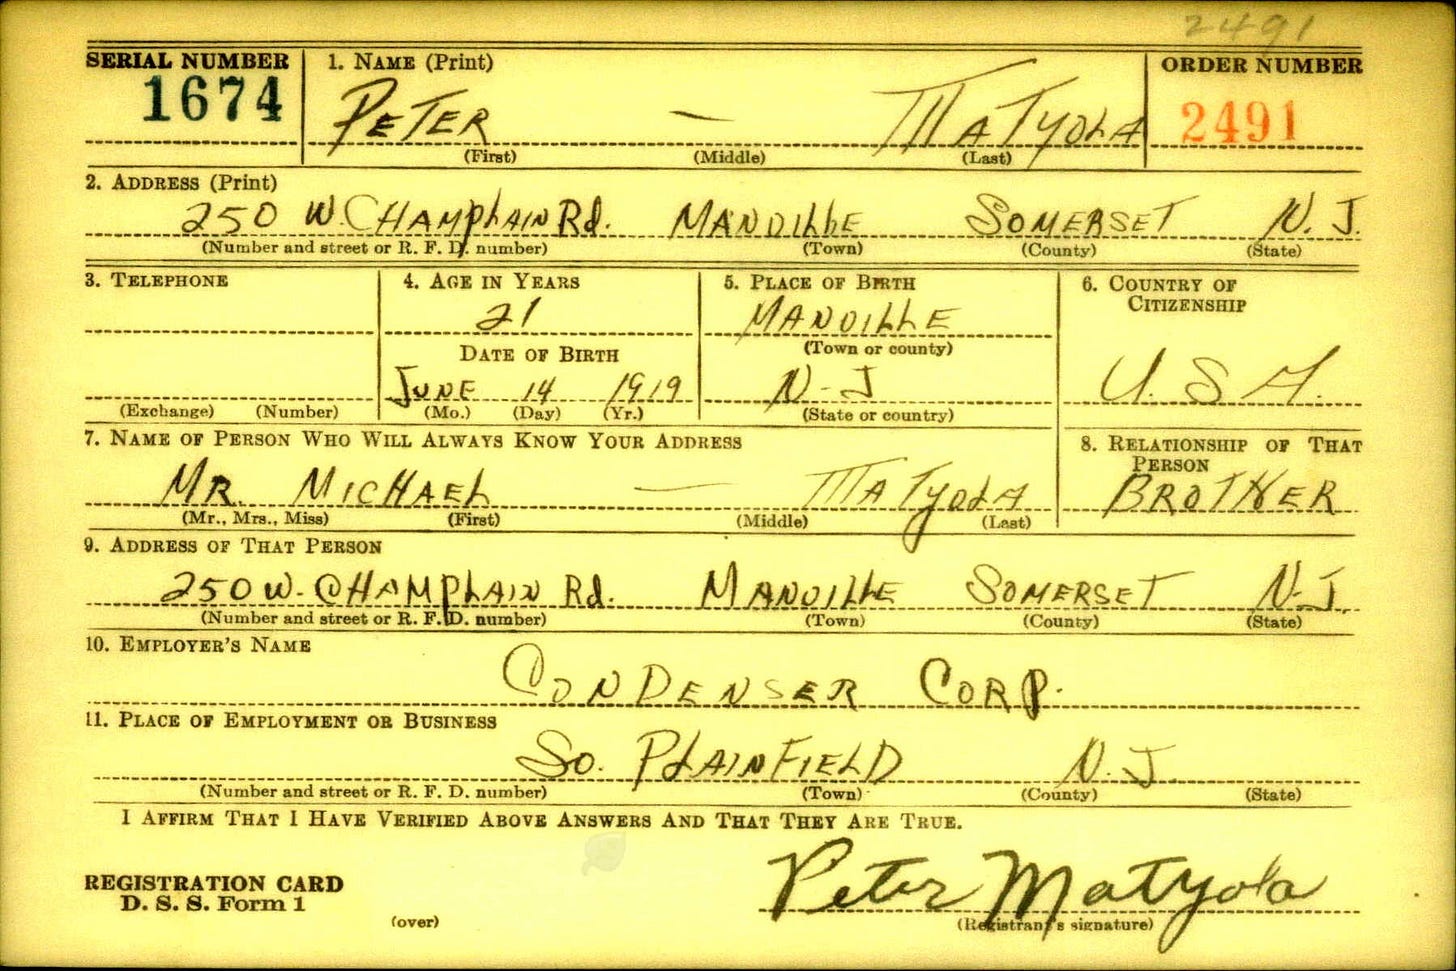 2491
SERIAL NUMBER 1. NAME (Print) ORDER NUMBER
1674 PETER — MATYOLA 2491
(First) (Middle) (Last)
2. ADDRESS (Print)
250 W. CHAMPLAIN Rd. MANVILLE SOMERSET N. J.
(Number and street or R. F. D. number) (Town) (County) (State)
3. TELEPHONE 4. AGE IN YEARS 5. PLACE OF BIRTH 6. COUNTRY OF
CITIZENSHIP
21 MANVILLE
DATE OF BIRTH (Town or county)
JUNE 14 1919 N-J U. S A.
(Exchange) (Number) (Mo.) (Day) (Yr.) (State or country)
7. NAME OF PERSON WHO WILL ALWAYS KNOW YOUR ADDRESS 8. RELATIONSHIP OF THAT
PERSON
MR. MICHAEL — MATYOLA BROTHER
(Mr., Mrs., Miss) (First) (Middle) (Last)
9. ADDRESS OF THAT PERSON
250 W. CHAMPLAIN Rd. MANVILLE SOMERSET N-J.
(Number and street or R. F. D. number) (Town) (County) (State)
10. EMPLOYER'S NAME
CONDENSER CORP.
11. PLACE OF EMPLOYMENT OR BUSINESS
So. PLAINFIELD N. J.
(Number and street or R. F. D. number) (Town) (County) (State)
I AFFIRM THAT I HAVE VERIFIED ABOVE ANSWERS AND THAT THEY ARE TRUE.
REGISTRATION CARD Peter Matyola
D. S. S. Form 1 (over) (Registrant's signature)